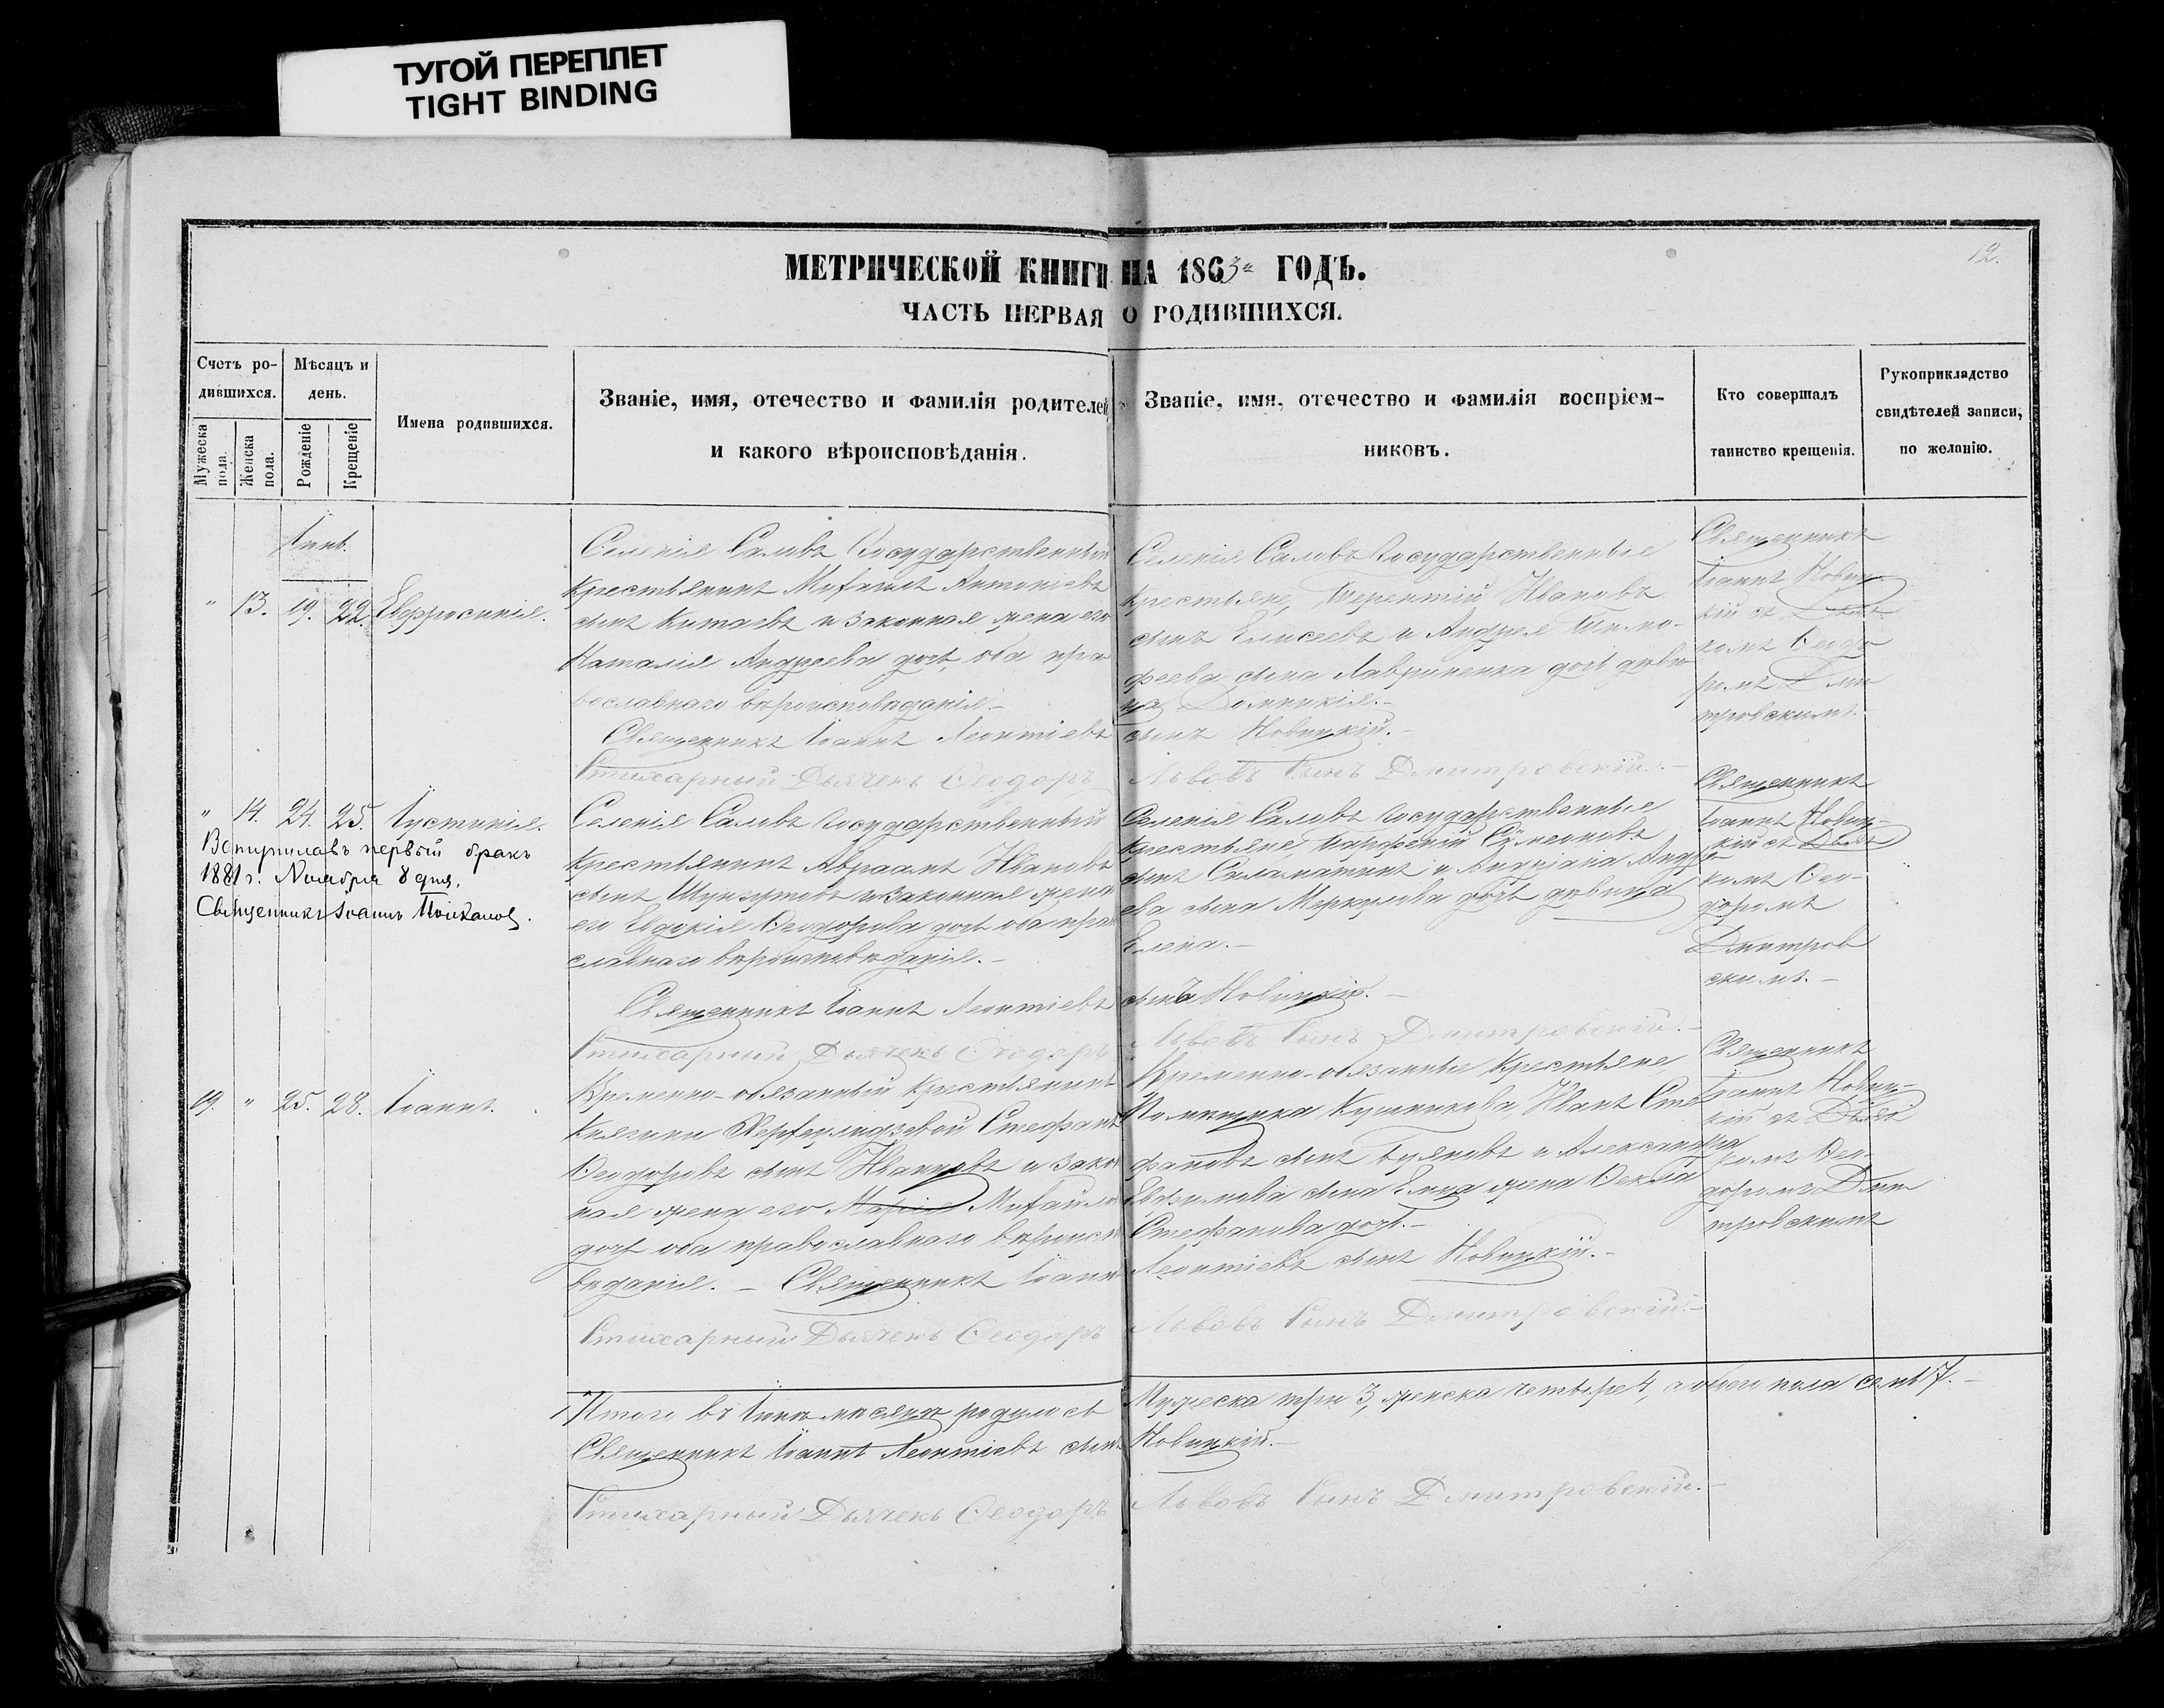 ТУГОЙ ПЕРЕПЛЕТ
TIGHT BINDING
12.
МЕТРИЧЕСКОЙ КНИГИ НА 1863й ГОДЪ.
ЧАСТЬ ПЕРВАЯ О РОДИВШИХСЯ.
Счетъ ро-
дившихся.
Мужеска пола.
Женска пола.
Мѣсяцъ и
день.
Рожденіе
Крещеніе
Имена родившихся.
Званіе, имя, отечество и фамилія родителей
и какого вѣроисповѣданія.
Званіе, имя, отечество и фамилія воспріем-
никовъ.
Кто совершалъ
таинство крещенія.
Рукоприкладство
свидѣтелей записи,
по желанію.
" 13. 19. 22. Евфросинія.
Селенія Саловъ Государственный
крестьянинъ Михаилъ Антоніевъ
сынъ Китаевъ и законная жена его
Наталія Андреева дочь, оба пра
вославнаго вѣроисповѣданія.-
Священникъ Іоаннъ Леонтіевъ
Стихарный Дьячекъ Ѳеодоръ
Селенія Саловъ Государственные
крестьяне, Терентій Ивановъ
сынъ Елисеевъ и Андрея Тимо-
феева сына Лавриненка дочь дѣви-
ца Домникія.-
сынъ Новицкій.-
Львовъ Сынъ Дмитровскій.-
Священникъ
Іоаннъ Новиц-
кій съ Дьяч-
комъ Ѳеодо
ромъ Дми
тровскимъ.
" 14. 24. 25. Іустинія.
Вступила въ первый бракъ
1881 г. Ноября 8 дня.
Священникъ Іоаннъ
Селенія Саловъ Государственный
крестьянинъ Авраамъ Ивановъ
сынъ и законная жена
его Евдокія Ѳеодорова дочь оба право
славнаго вѣроисповѣданія.-
Священникъ Іоаннъ Леонтіевъ
Стихарный Дьячекъ Ѳеодоръ
Селенія Саловъ Государственные
крестьяне, Парфеній Сумеоновъ
сынъ Саламатинъ и Андре-
ева сына Меркулова дочь дѣвица
Елена.-
сынъ Новицкій.-
Львовъ Сынъ Дмитровскій.-
Священникъ
Іоаннъ Новиц-
кій съ Дьяч
комъ Ѳео-
доромъ
Дмитров
скимъ.-
19. " 25. 28. Іоаннъ.
Временно-обязанный крестьянинъ
Княгини Херхеулидзевой Стефанъ
Ѳеодоровъ сынъ Ивановъ и закон
ная жена его Марія Михайлова
дочь оба православнаго вѣроиспо
вѣданія.- Священникъ Іоаннъ
Стихарный Дьячекъ Ѳеодоръ
Временно-обязанные крестьяне
Помѣщика Кушникова, Иванъ Сте
фановъ сынъ Буяновъ и Александра
Евфимова сына жена Ѳекла
Стефанова дочь.-
Леонтіевъ сынъ Новицкій.-
Львовъ Сынъ Дмитровскій.-
Священникъ
Іоаннъ Новиц-
кій съ Дьяч
комъ Ѳео-
доромъ Дми
тровскимъ
Итого въ мѣсяцѣ родилось
Мужеска три 3, женска четыре 4, а обоего пола семь 7.-
Священникъ Іоаннъ Леонтіевъ сынъ Новицкій.-
Стихарный Дьячекъ Ѳеодоръ Львовъ Сынъ Дмитровскій.-